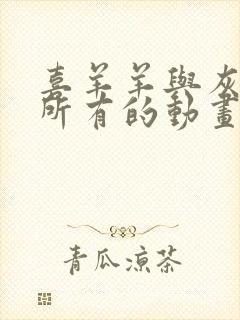 喜羊羊與灰
所有的動畫
青瓜涼茶